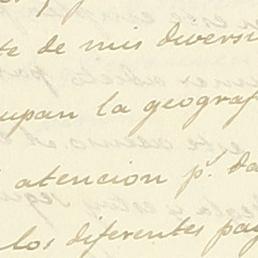 te de mis diversi
upan la geograf
atencion p.r da
los diferentes pa